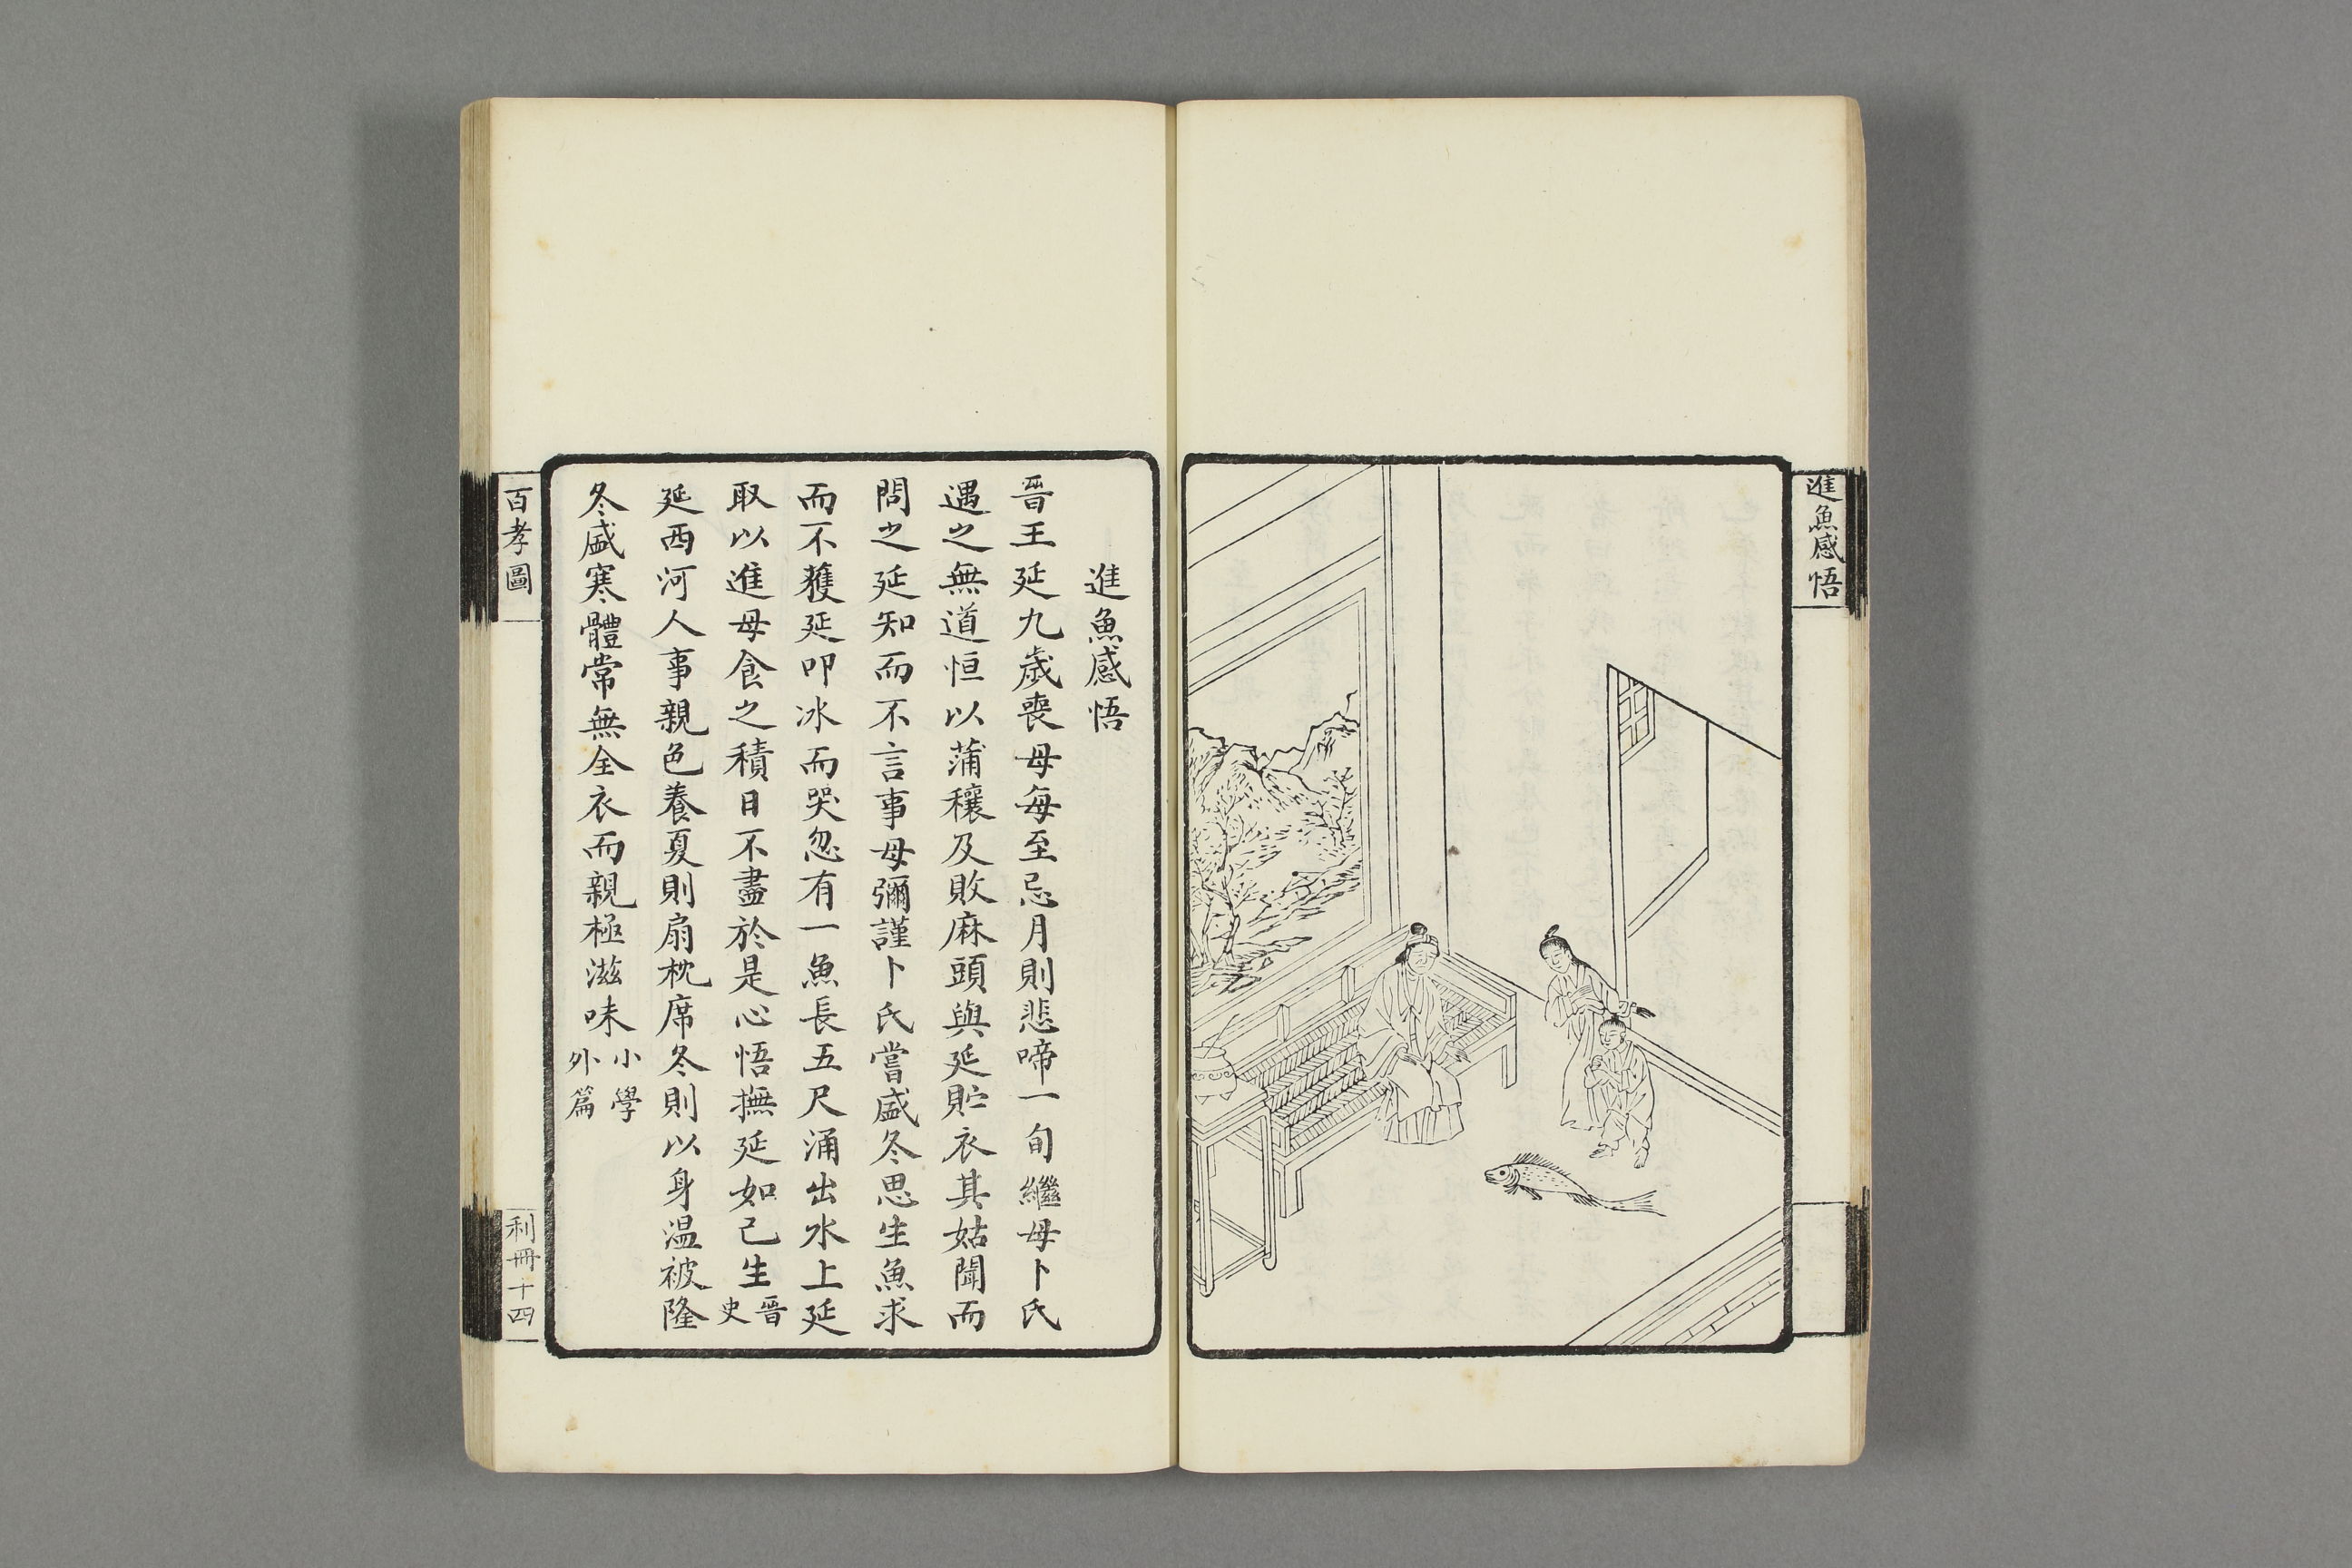 進魚感悟
進魚感悟
晉王延九歲喪母每至忌月則悲啼一旬繼母卜氏
遇之無道恒以蒲穰及敗麻頭與延貯衣其姑聞而
問之延知而不言事母彌謹卜氏嘗盛冬思生魚求
而不獲延叩冰而哭忽有一魚長五尺涌出水上延
取以進母食之積日不盡於是心悟撫延如己生晉史
延西河人事親色養夏則扇枕席冬則以身温被隆
冬盛寒體常無全衣而親極滋味小學外篇
百孝圖
利冊十四